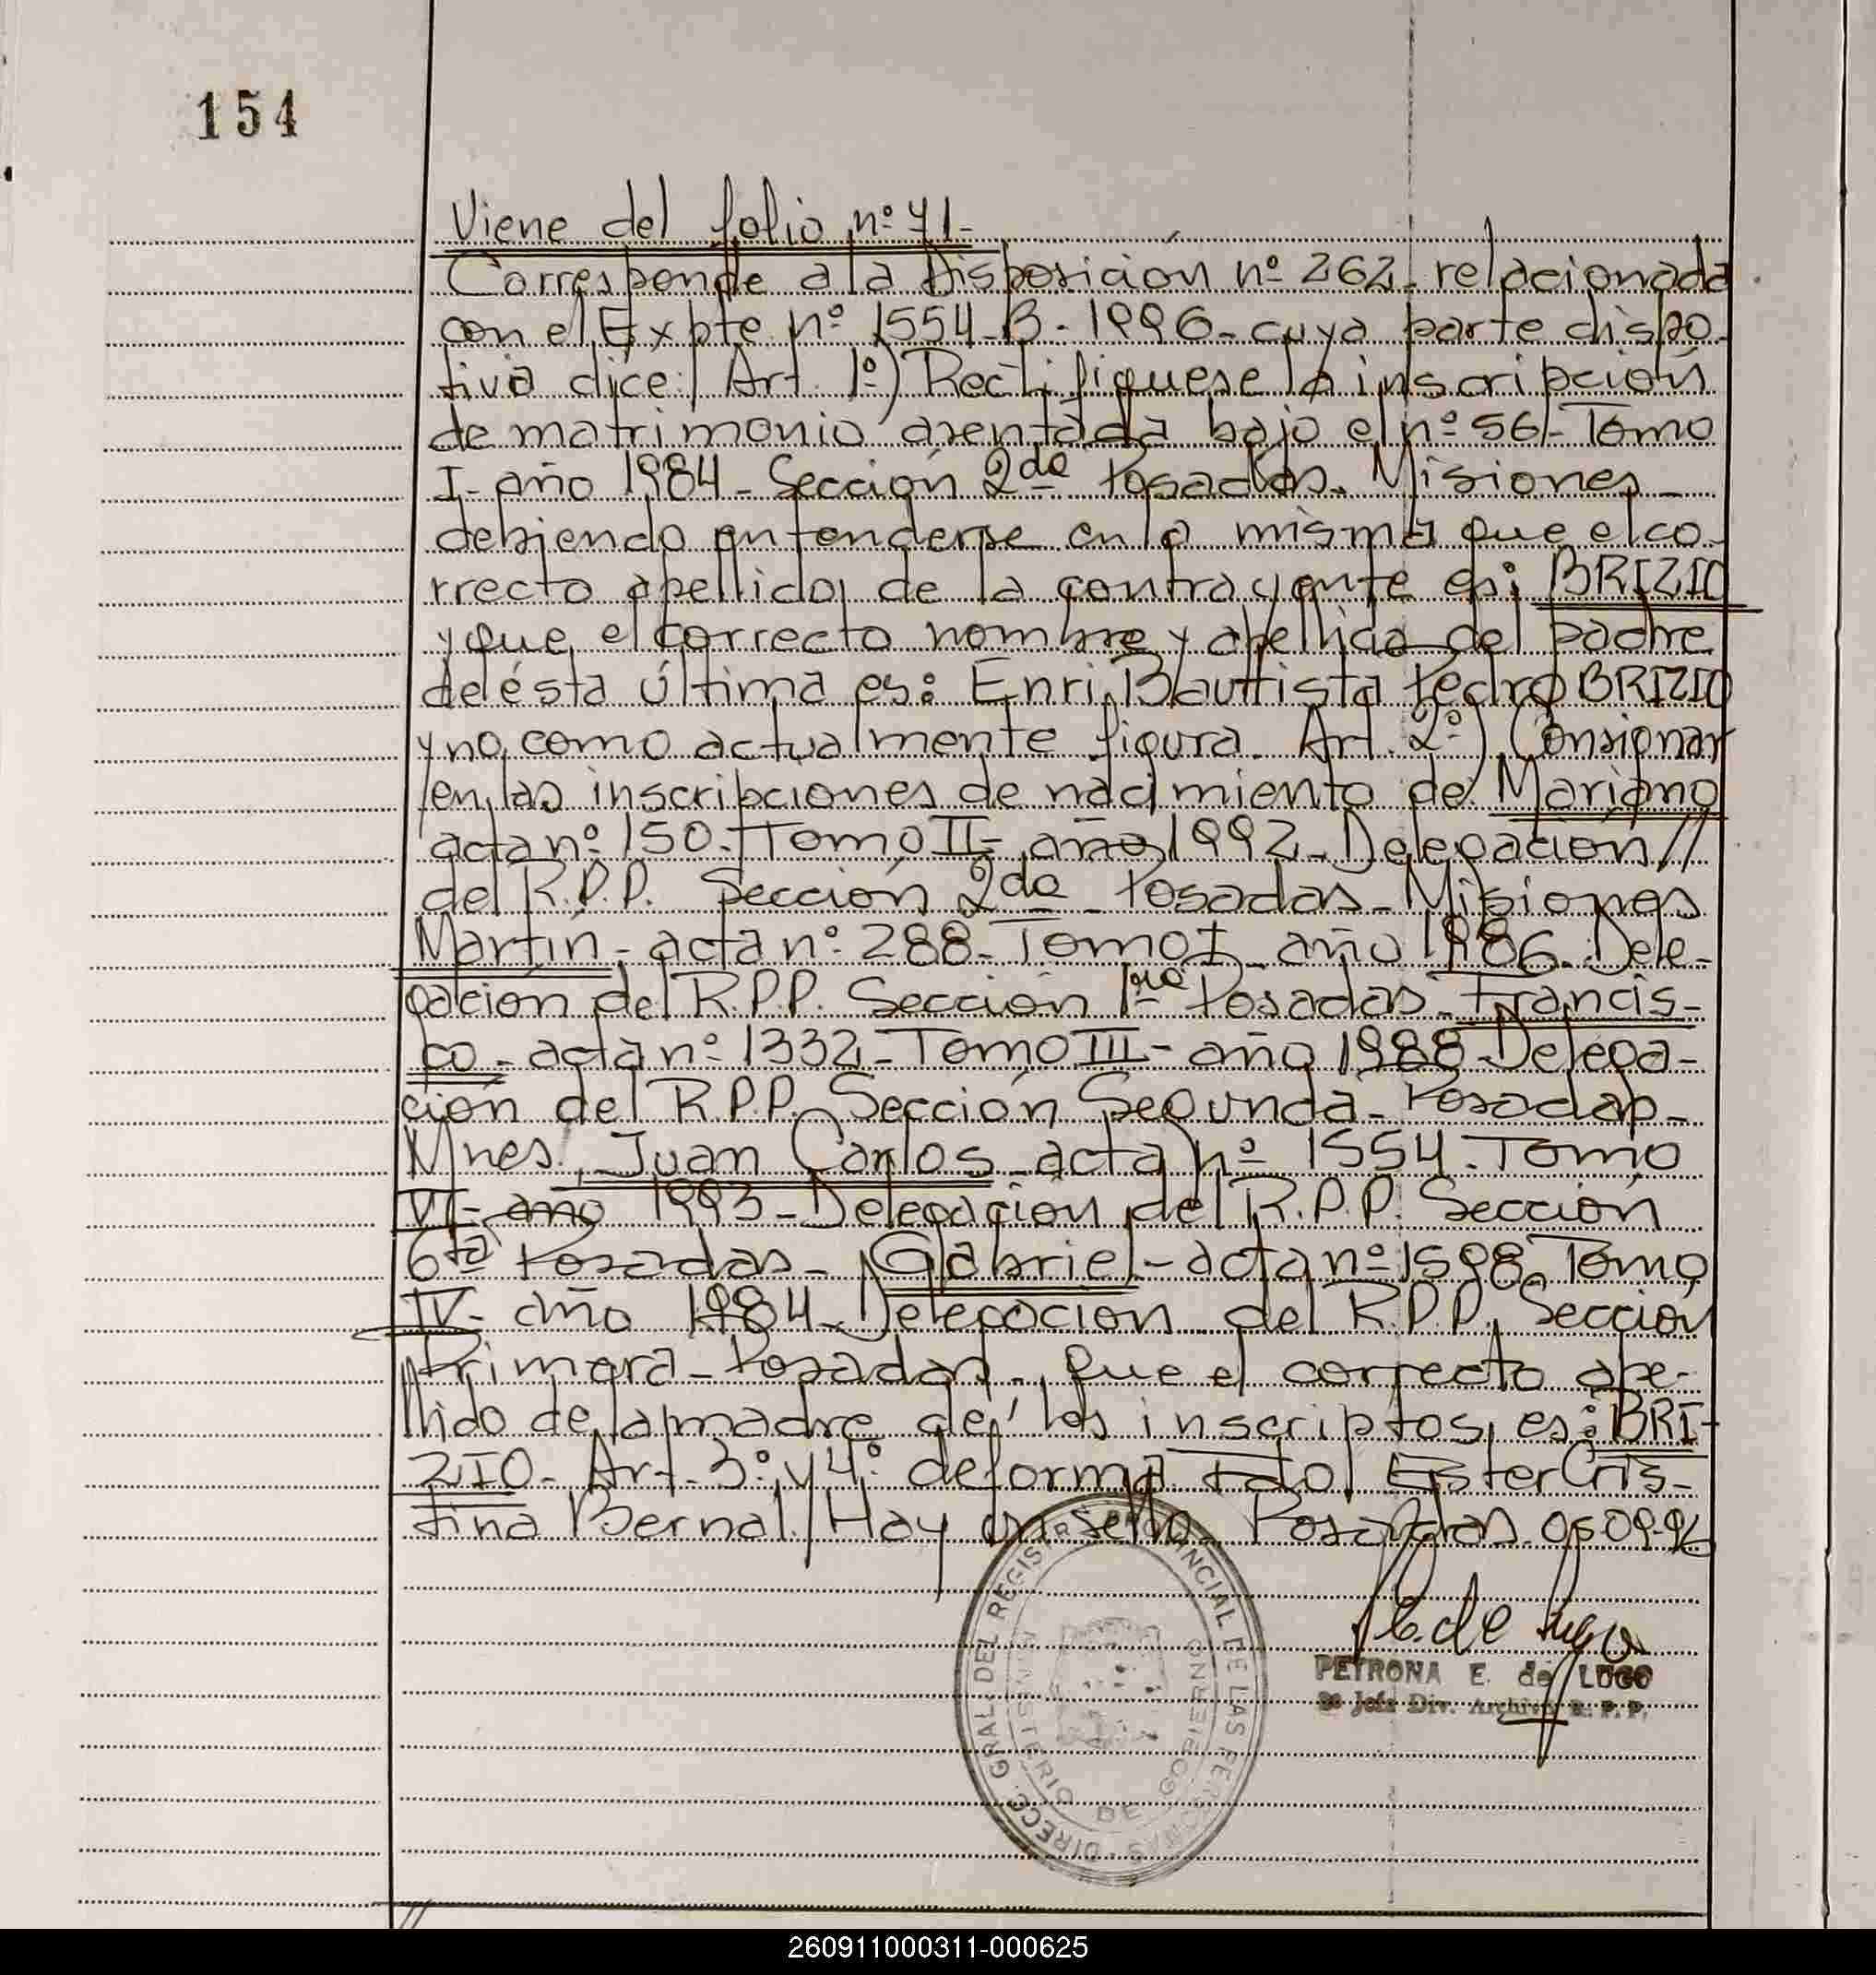 154
Viene del folio nº 71-
Corresponde a la Disposición nº 262- relacionada
con el Expte nº 1554-B-1996- cuya parte dispo-
tiva dice: Art. 1º) Rectifiquese la inscripción
de matrimonio asentada bajo el nº 56- Tomo
I- año 1984- Sección 2da Posadas. Misiones-
debiendo entenderse en la misma que el co-
rrecto apellido de la contrayente es: BRIZIO
y que el correcto nombre y apellido del padre
de ésta última es: Enri Bauttista Pedro BRIZIO
y no como actualmente figura. Art. 2º) Consignar
en las inscripciones de nacimiento de: Mariano
acta nº 150. Tomo II- año 1992- Delegación //
del R.P.P. Sección 2da Posadas- Misiones
Martín- acta nº 288- Tomo I- año 1986. Dele-
gación del R.P.P. Sección 1ra Posadas- Francis-
co- acta nº 1332- Tomo III- año 1988- Delega-
ción del R.P.P. Sección Segunda- Posadas-
Mnes. Juan Carlos- acta nº 1554. Tomo
VI- año 1993- Delegación del R.P.P. Sección
6ta Posadas- Gabriel- acta nº 1598 Tomo
IV- año 1984- Delegación del R.P.P. Sección
Primera- Posadas-, que el correcto ape-
llido de la madre de los inscriptos, es: BRI-
ZIO- Art. 3º y 4º de forma Fdo/ Ester Cris-
tina Bernal/ Hay un sello. Posadas 05-09-96
DIRECC. GRAL. DEL REGISTRO PROVINCIAL DE LAS PERSONAS
MINISTERIO DE GOBIERNO
P.E. de Lugo
PETRONA E. de LUGO
2º Jefa Div. Archivo R. P. P.
260911000311-000625